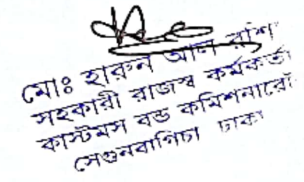 মোঃ হারুন আল রশি
সহকারী রাজস্ব কর্মকর্তা
কাস্টমস বন্ড কমিশনারে
সেগুনবাগিচা ঢাকা